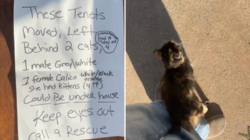 These Tenets
Moved, Left
Behind 2 cats
1 male Grey/white
1 female Calico white/black
orange
She had Kittens (4??)
Could Be under house
Keep eyes out
call a Rescue